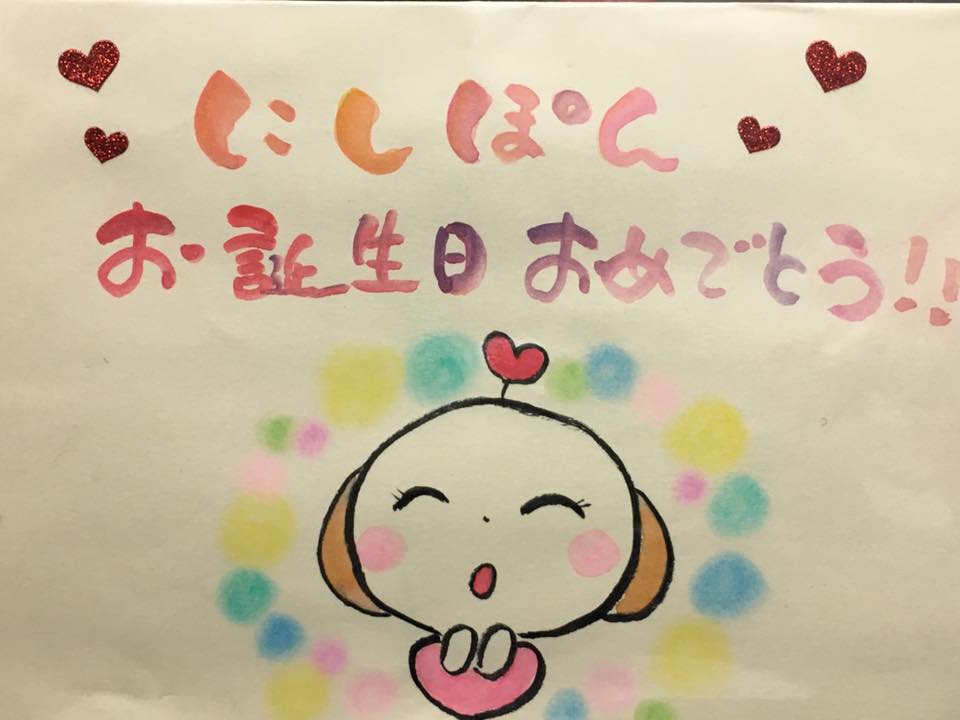 にしぽん
お誕生日おめでとう!!